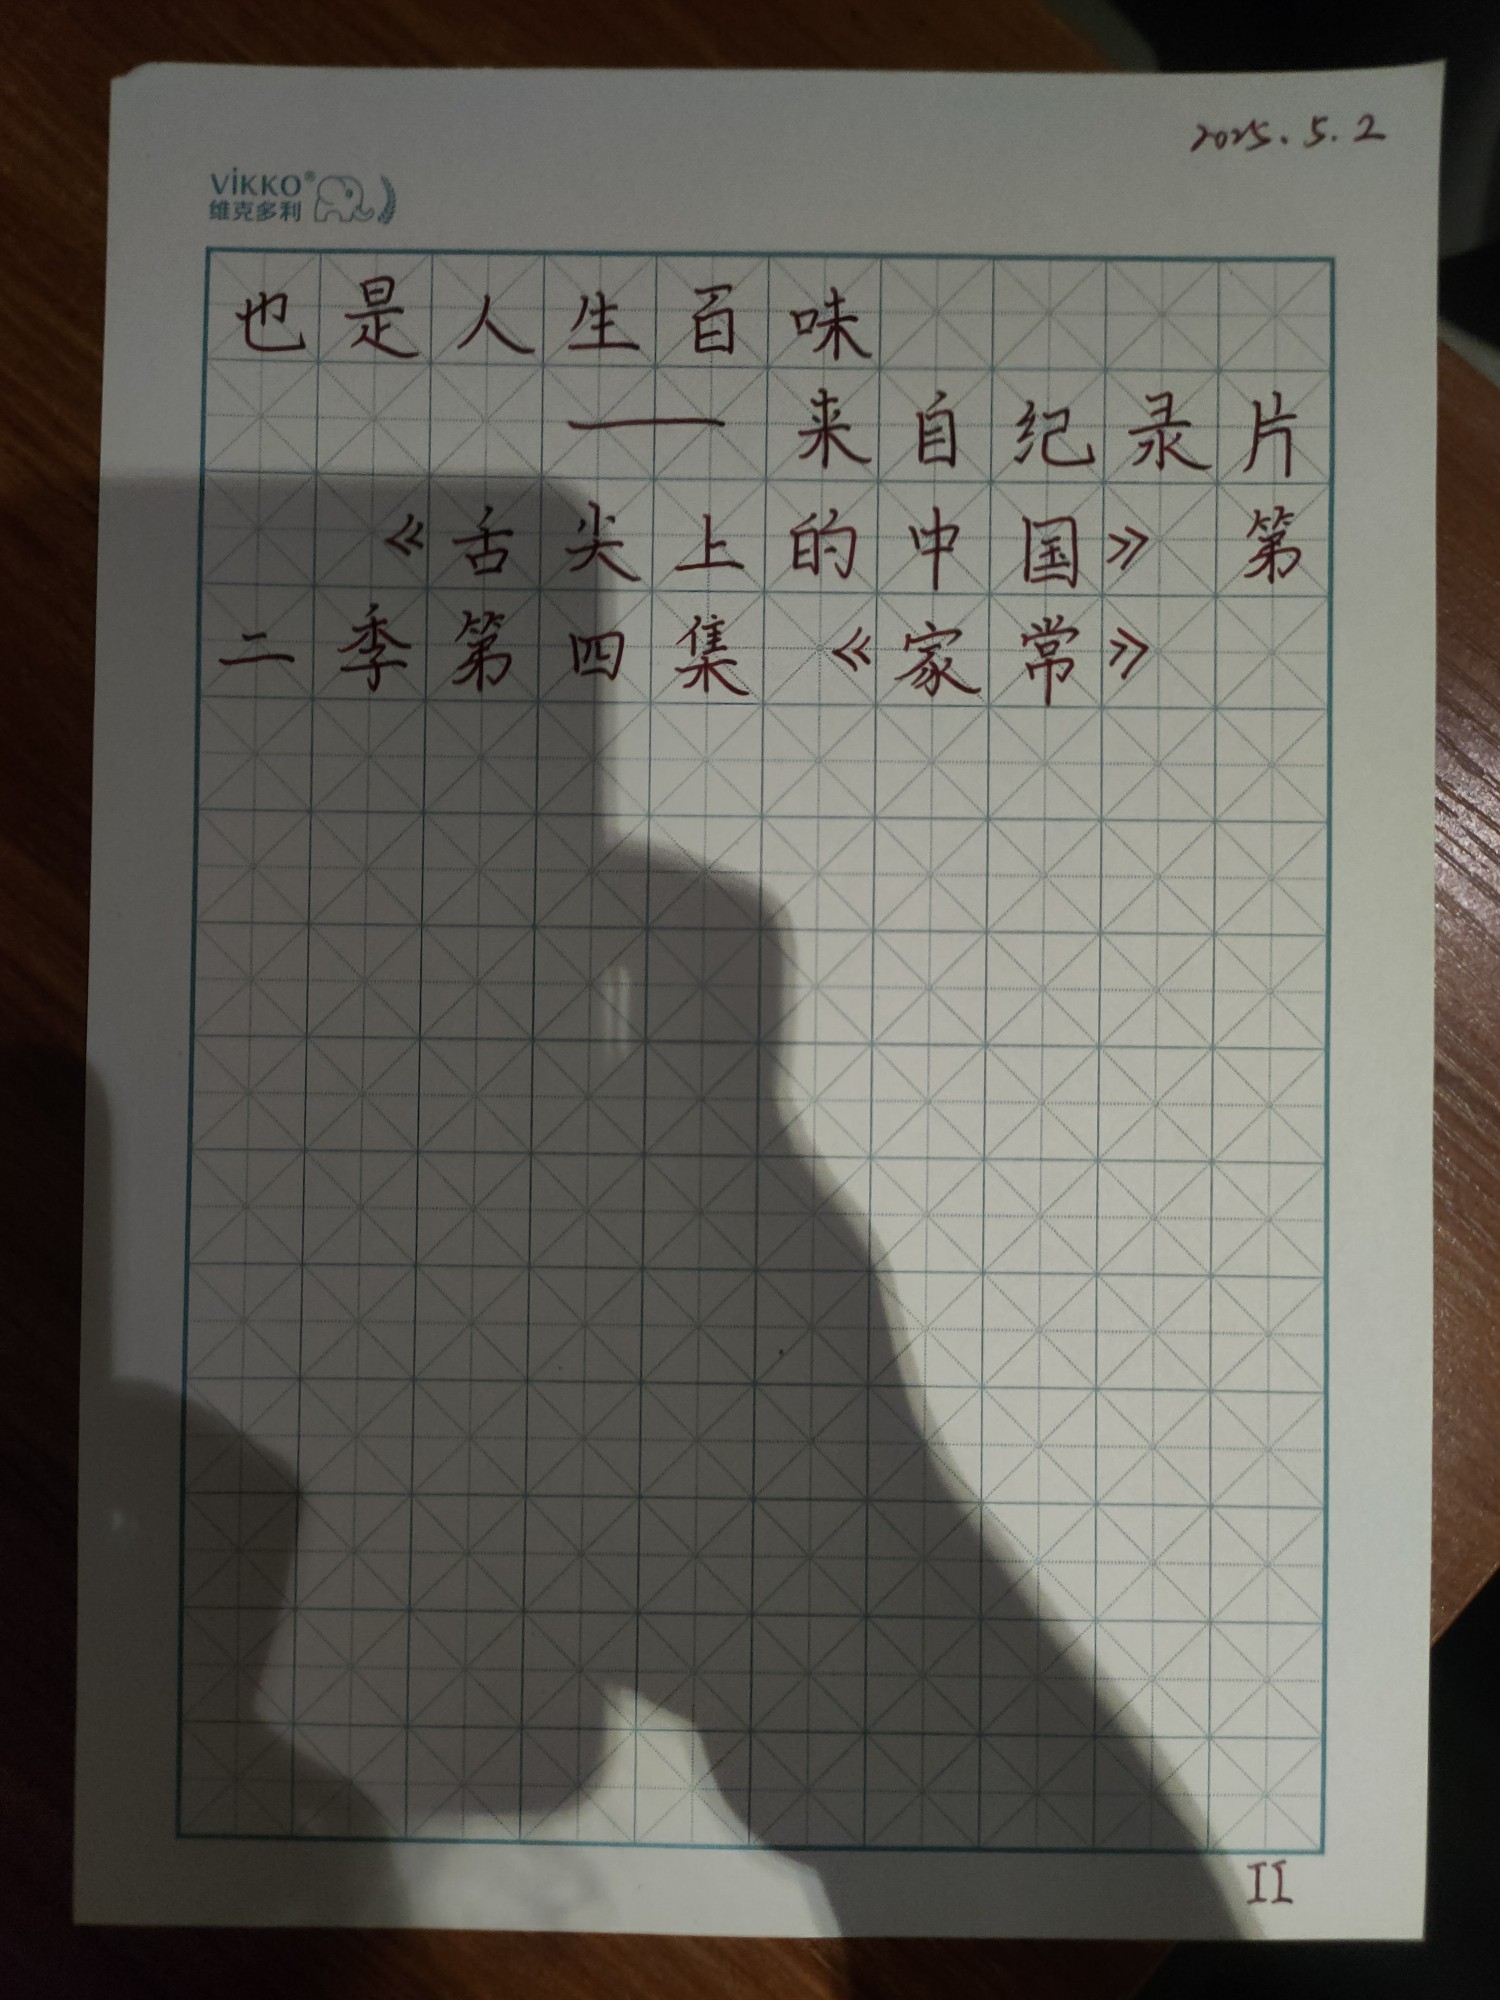 2025.5.2
VIKKO®
维克多利
也是人生百味
——来自纪录片
《舌尖上的中国》第
二季第四集《家常》
II